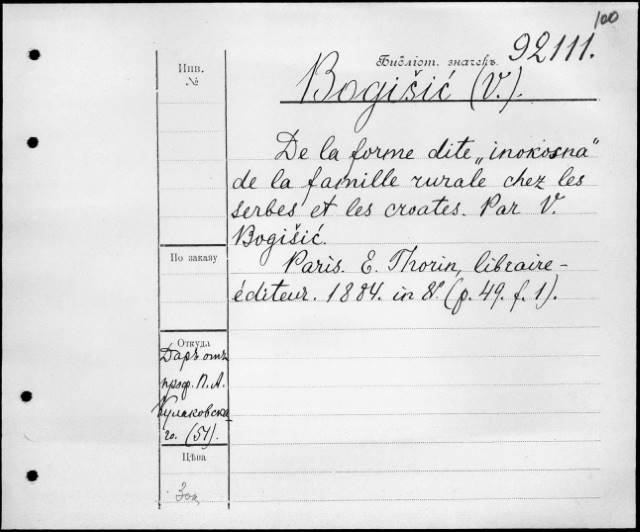 100
Библіот. значекъ 92111.
Инв.
№
Bogišić (V.).
De la forme dite „inokosna“
de la famille rurale chez les
serbes et les croates. Par V.
Bogišić.
По заказу
Paris. E. Thorin, libraire-
éditeur. 1884. in 8º. (p. 49. f. 1).
Откуда
Даръ отъ
проф. П. А.
Кулаковска
го. (51).
Цѣна